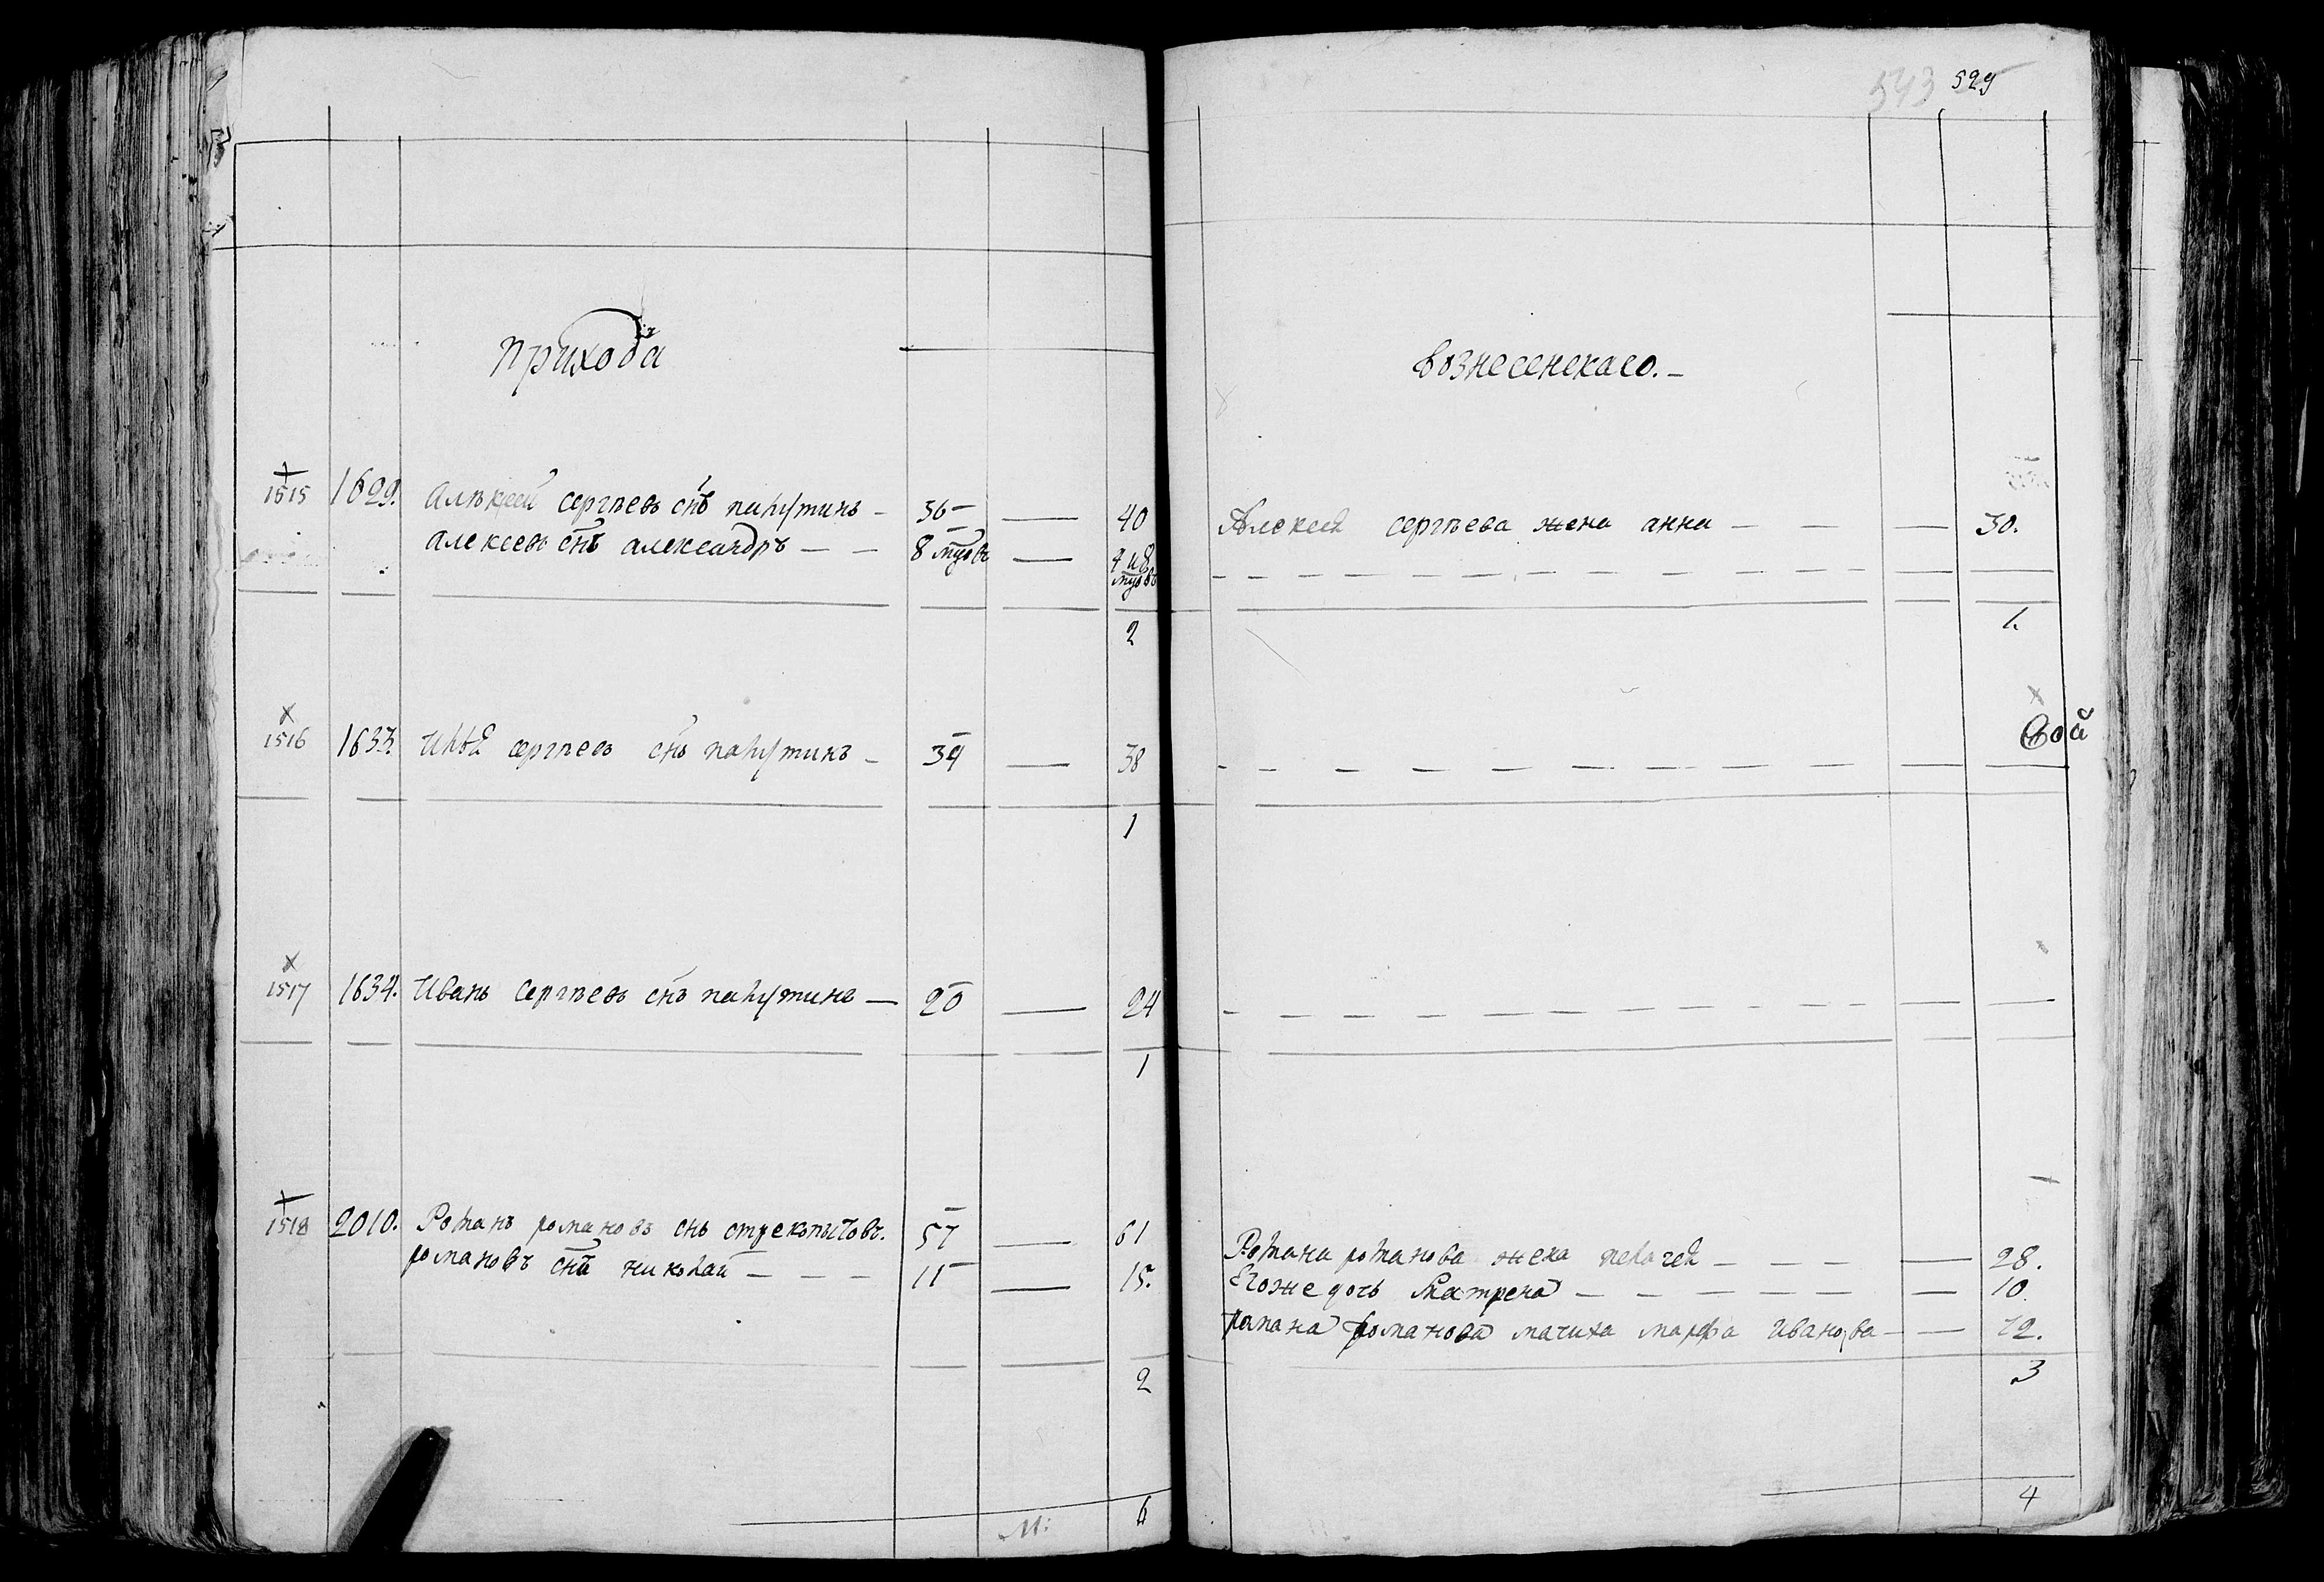 543 529
прихода
вознесенскаго.-
1515 1629. Алѣксей сергѣевъ снъ пахутинъ - 36 — 40
алексѣевъ снъ александръ — — 8 — 4 и 8
2
Алексея сергѣева жена анна — — — 30.
1.
1516 1633. сергѣевъ снъ пахутинъ - 34 — 38
1
1517 1634. Иванъ сергѣевъ снъ пахутинъ — 20 — 24
1
1518 2010. Романъ романовъ снъ стрекопытовъ. 57 — 61
романовъ снъ николай — — — 11 — 15.
2
Романа романова жена пелагея — — — — 28.
Егоже дочь Матрена — — — — — — 10
романа романова мачиха марфа иванова — — 72.
3
М: 6
4